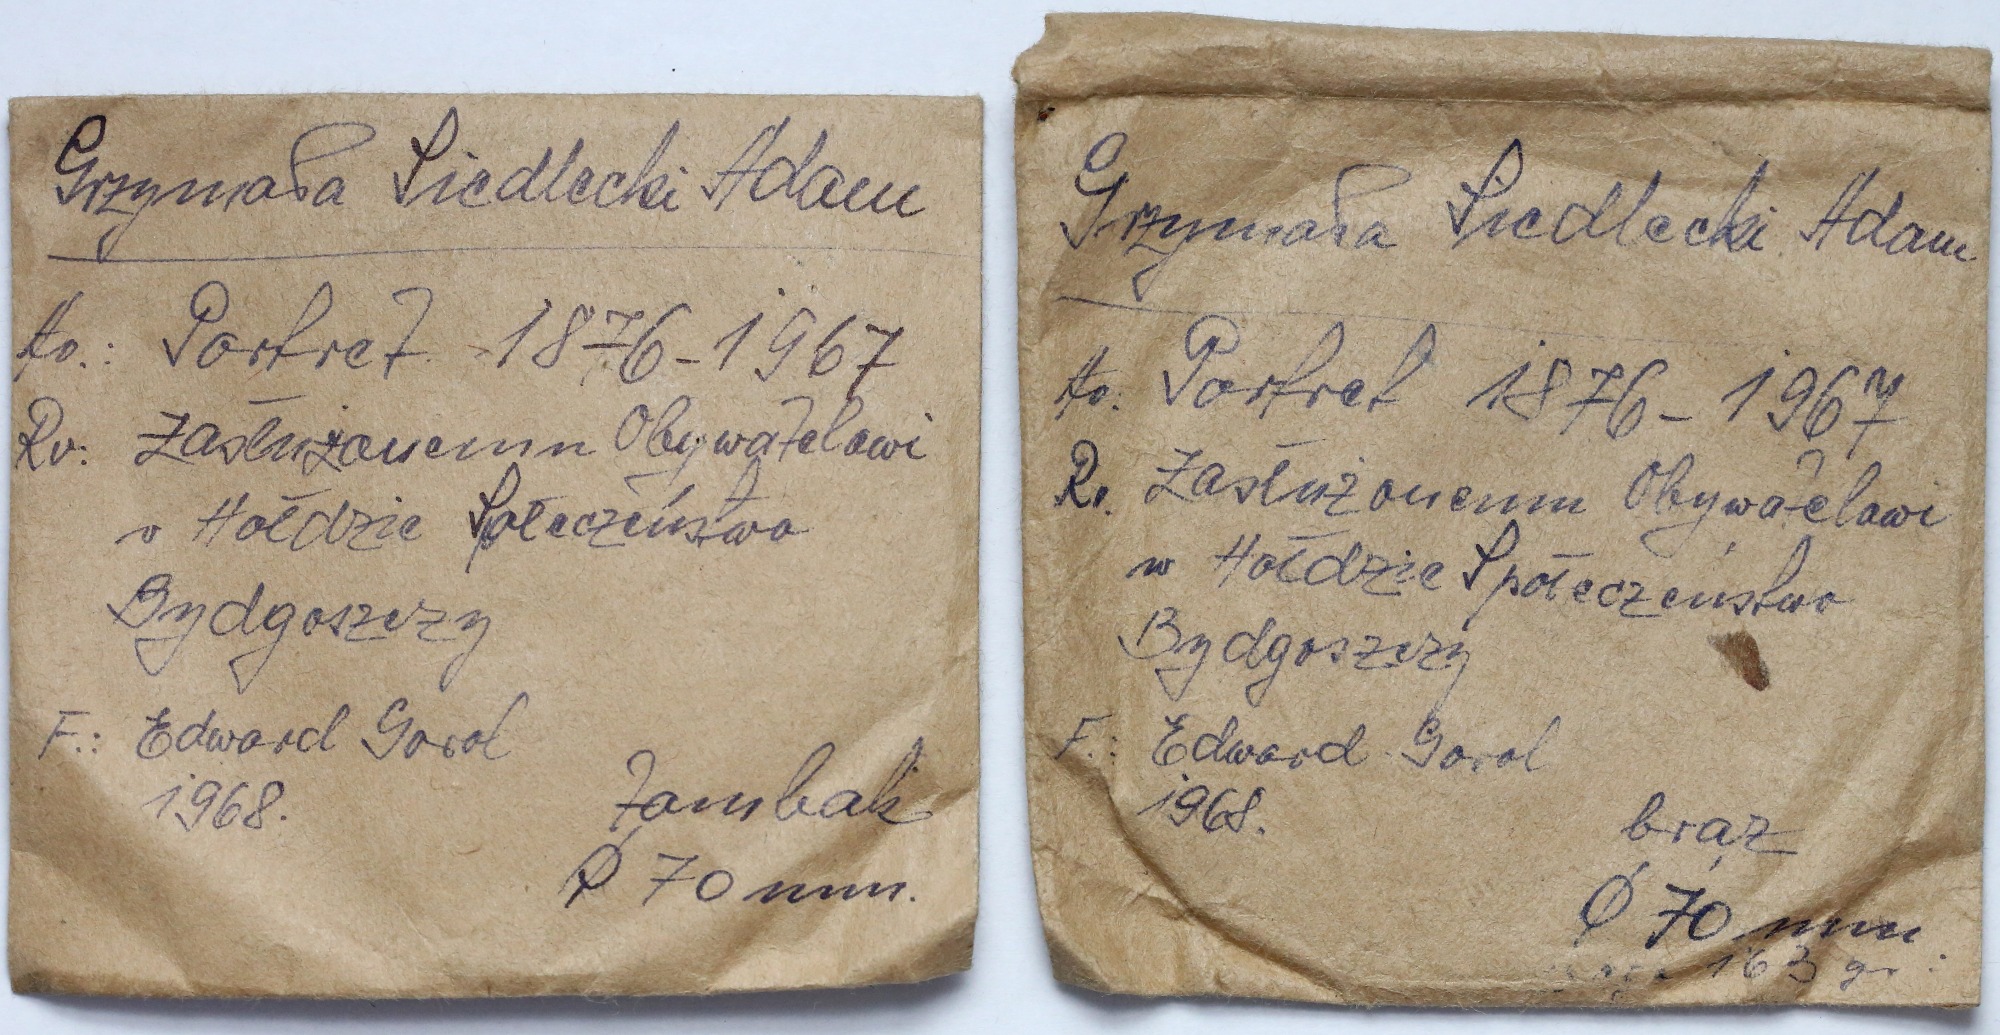 Grzymała Siedlecki Adam
Av.: Portret 1876-1967
Rv: Zasłużonemu Obywatelowi
w Hołdzie Społeczeństwo
Bydgoszczy
F.: Edward Gorol
1968.
Tombak
Ø 70 mm.
Grzymała Siedlecki Adam
Av. Portret 1876-1967
Rv. Zasłużonemu Obywatelowi
w Hołdzie Społeczeństwo
Bydgoszczy
F.: Edward Gorol
1968.
brąz
Ø 70 mm
163 gr.